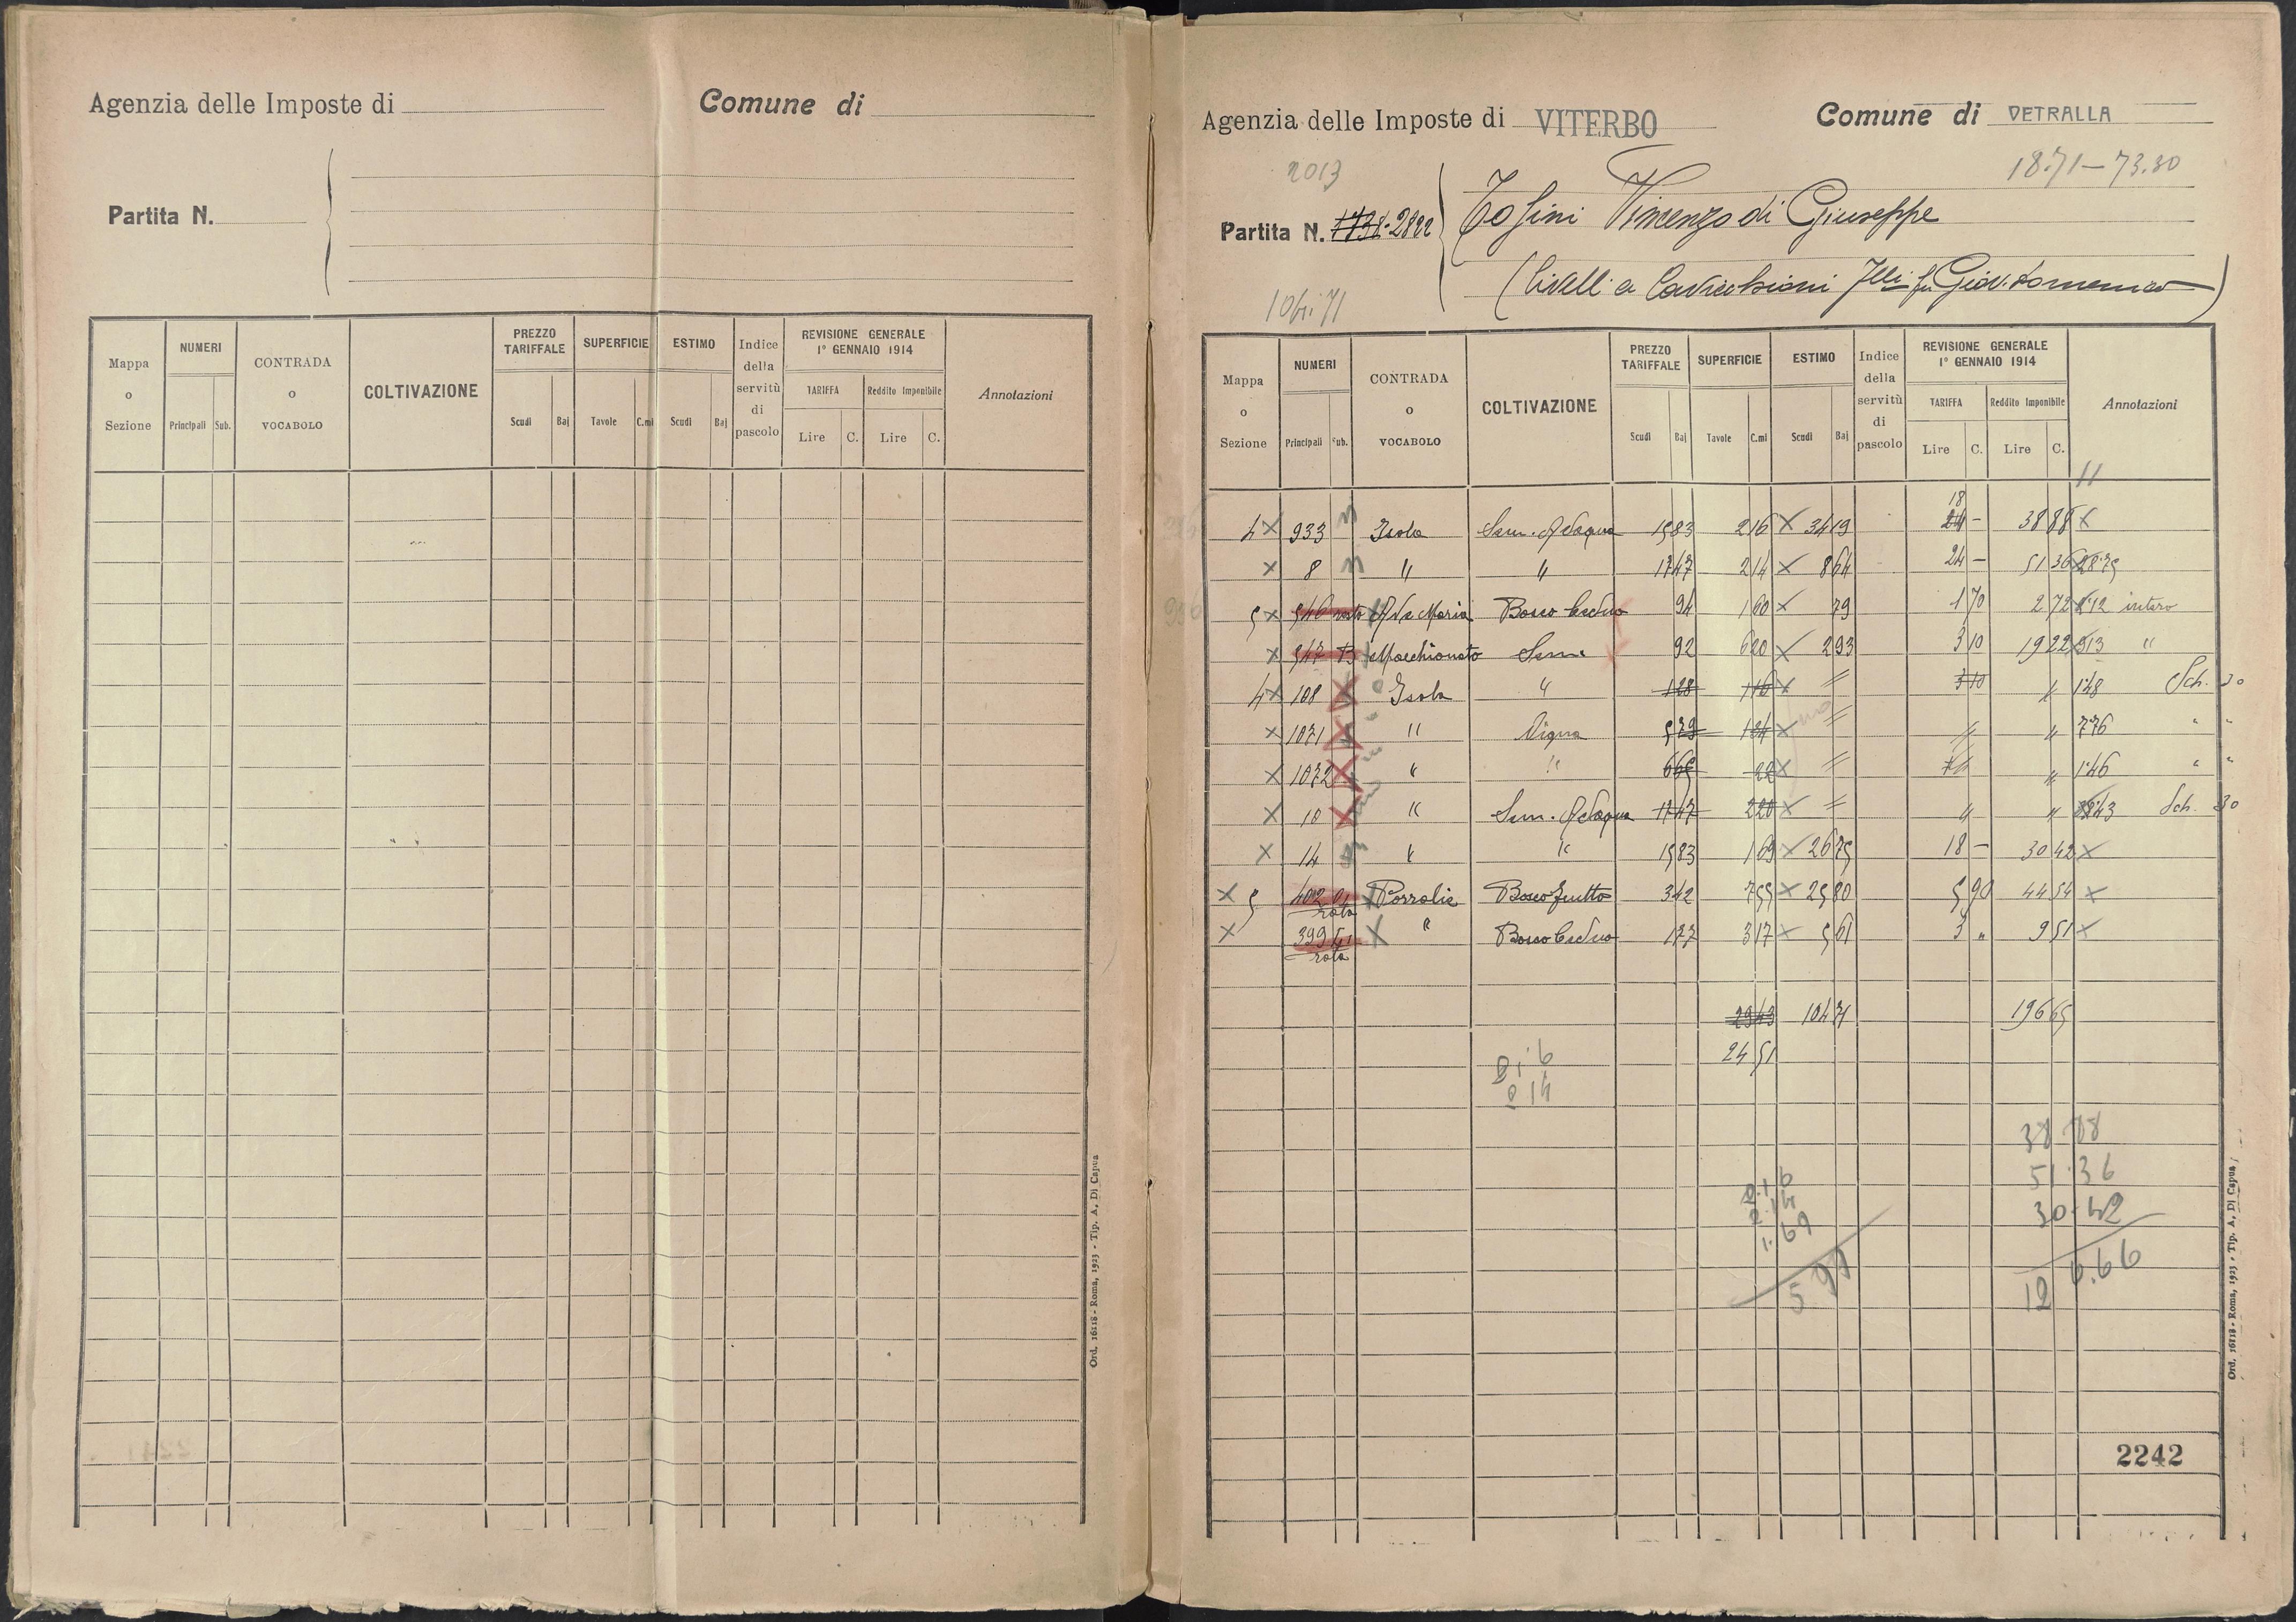 Agenzia delle Imposte di
Comune di
Partita N.
Mappa o Sezione
NUMERI
Principali Sub.
CONTRADA o VOCABOLO
COLTIVAZIONE
PREZZO TARIFFALE
Scudi Baj
SUPERFICIE
Tavole C.mi
ESTIMO
Scudi Baj
Indice della servitù di pascolo
REVISIONE GENERALE 1° GENNAIO 1914
TARIFFA
Lire C.
Reddito Imponibile
Lire C.
Annotazioni
Ord. 16118 - Roma, 1923 - Tip. A. Di Capua
Agenzia delle Imposte di VITERBO
Comune di VETRALLA
2013
18.71 — 73.80
Partita N. 1738 · 2822
Tosini Vincenzo di Giuseppe
(Livell. a
Mappa o Sezione
NUMERI
Principali Sub.
CONTRADA o VOCABOLO
COLTIVAZIONE
PREZZO TARIFFALE
Scudi Baj
SUPERFICIE
Tavole C.mi
ESTIMO
Scudi Baj
Indice della servitù di pascolo
REVISIONE GENERALE 1° GENNAIO 1914
TARIFFA
Lire C.
Reddito Imponibile
Lire C.
Annotazioni
11
18
4 X 933 Isola Sem. Adaqua 15 83 2 16 X 34 19 24 - 38 88 X
X 8 " " 17 47 2 14 X 8 64 24 - 51 36
5 X 546 resto Ave Maria Bosco Ceduo 94 1 60 X 79 1 70 2 72 intero
X 547 Macchionato Sem. 92 6 20 X 2 93 3 10 19 22 "
4 X 108 X Isola " 128 116 X 3 10 " 1.48 Sch. 30
X 1071 X " Vigna 5 79 1 34 X " " 7.76 " "
X 1072 X " " 6 65 22 X " 1.46 " "
X 10 X " Sem. Adaqua 17 47 2 20 X " " Sch. 30
X 14 " " 15 83 1 69 X 26 75 18 - 30 42 X
X 5 402 rata Porralie Bosco frutto 3 42 7 55 X 25 80 5 90 44 54 X
X 399 rata X " Bosco Ceduo 1 77 3 17 X 5 61 3 " 9 51 X
29 43 104 71 196 65
24 51
2.16
2 14
38 88
51.36
30.42
126.66
2.16
2.14
1.69
5.99
2242
Ord. 16118 - Roma, 1923 - Tip. A. Di Capua